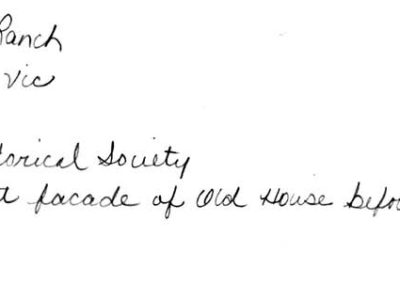 Ranch
vic
orical Society
t facade of Old House befo